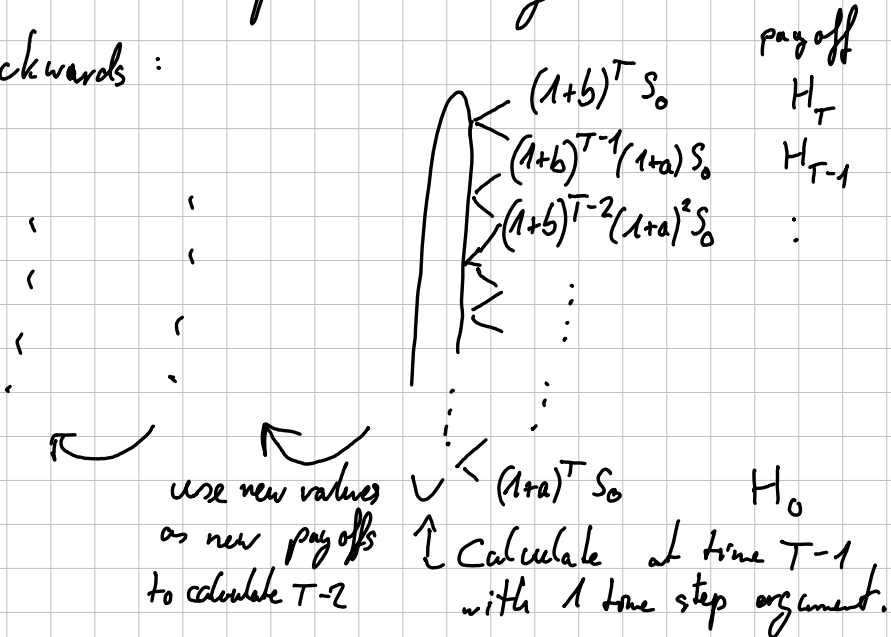 pay off
ckwards :
(1+b)^T S_0 H_T
(1+b)^{T-1} (1+a) S_0 H_{T-1}
(1+b)^{T-2} (1+a)^2 S_0 ⋮
(1+a)^T S_0 H_0
use new values
as new payoffs
to calculate T-2
Calculate at time T-1
with 1 time step argument.